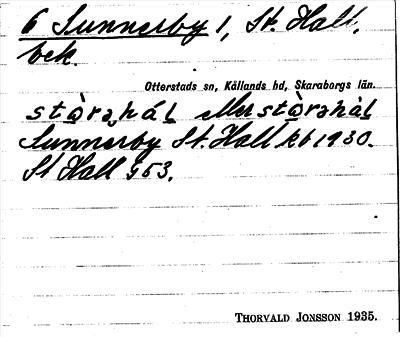 6 Sunnerby 1, St. Hall,
bek.
Otterstads sn, Kållands hd, Skaraborgs län.
stɷ̀rə hál eller stɷ̀rəhàl
Sunnerby St. Hall kb 1930.
St Hall G 53.
THORVALD JONSSON 1935.